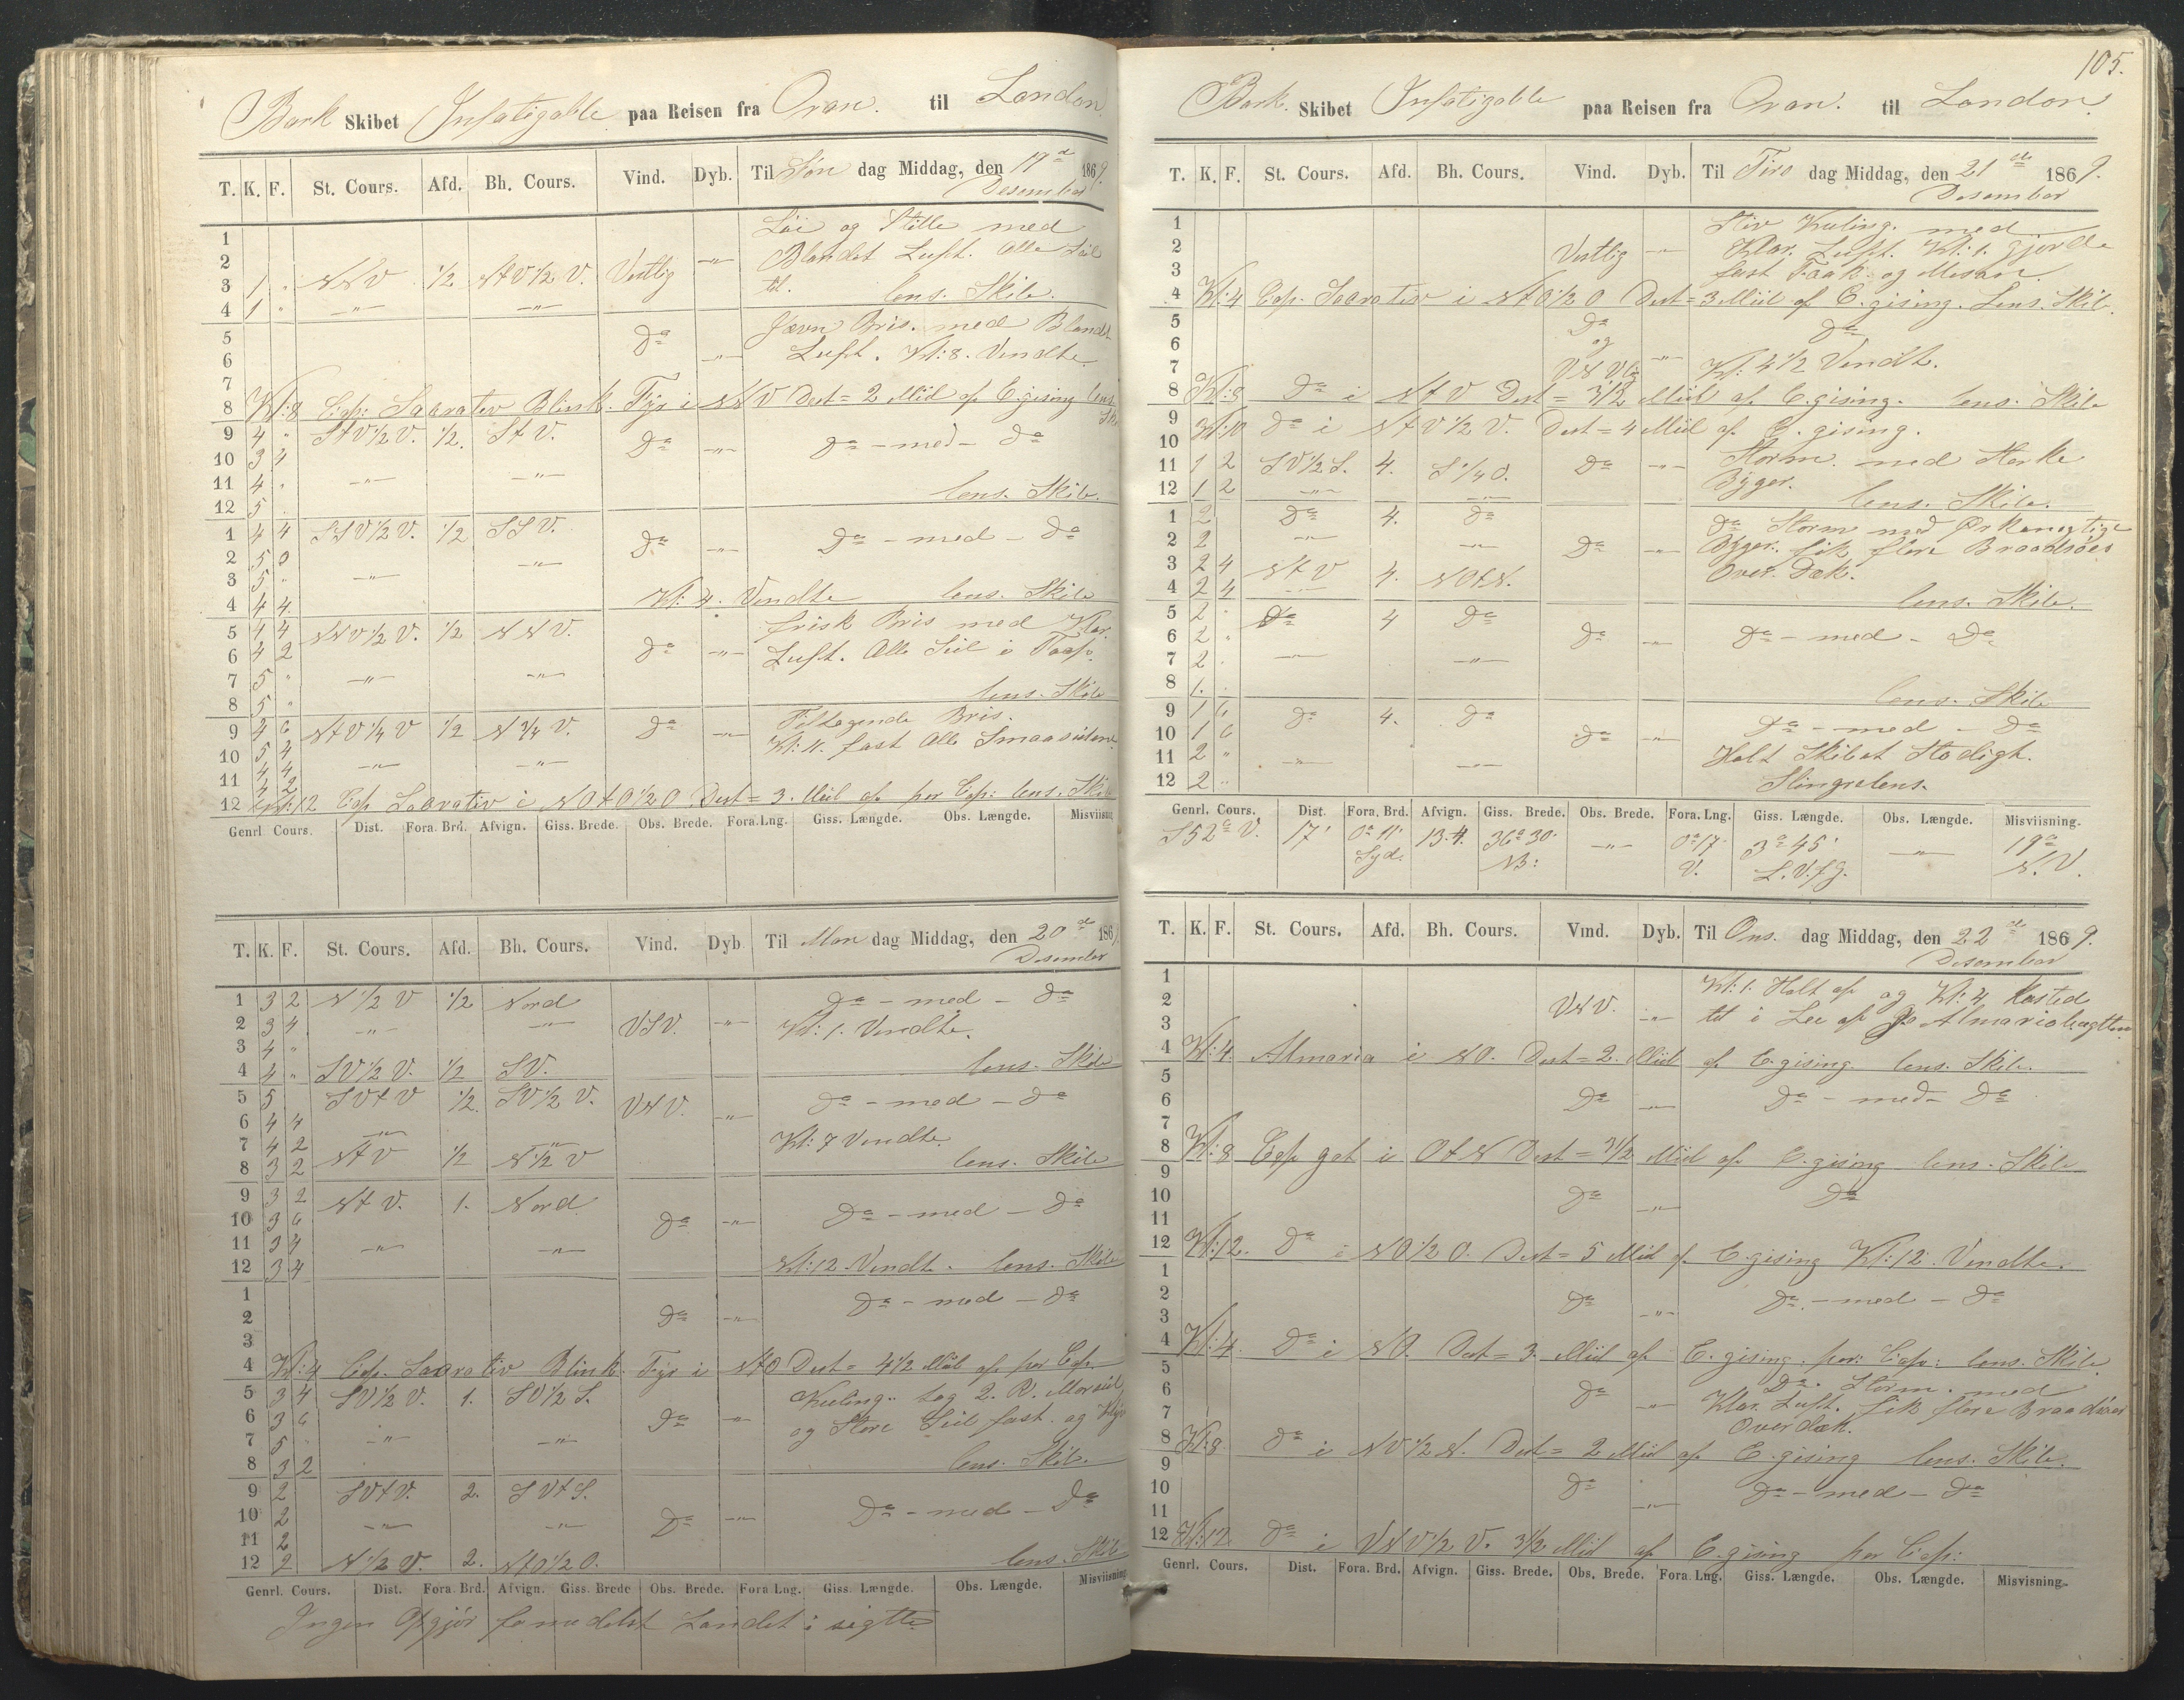 Bark Skibet Infatigable paa Reisen fra Oran. til London
T. K. F. St. Cours. Afd. Bh. Cours. Vind. Dyb. Til Søn dag Middag, den 19de 1869.
Desember
1 Löi og Stille med
2 Blandet Luft. Alle Seil
3 1 " NNV 1/2 NtV 1/2 V. Vestlig -"- til.
4 1 " -"- -"- lens. Skib.
5 Da Jævn Bris. med Blandt
6 -"- Luft. Kl: 8. Vendte
7
8 Kl: 8 Cap: Sabrativ Blink. Fyr i NNV Dest = 2 Miil af C.gising lens.
Skib
9 4 " StV 1/2 V. 1/2. StV. Da -"- Da - med - Da
10 3 4
11 4 " -"- -"-
12 5 lens. Skib.
1 4 4 SSV 1/2 V. 1/2 SSV. Da -"- Da - med - Da
2 5 0
3 5 " -"- -"-
4 4 4 Kl: 4. Vendte lens. Skib
5 4 4 NNV 1/2 V. 1/2 NNV. frisk Bris med Klar.
6 4 2 Da -"- Luft. Alle Seil i Top.
7 5 " -"- -"-
8 5 " lens. Skib
9 4 6 NtV 1/4 V 1/2 N 3/4 V. Da -"- Tiltagende Bris.
10 5 4 Kl: 11. fast Alle Smaaseilene
11 4 4 -"- -"-
12 Kl: 12 Cap Sabrativ i NOtO 1/2 O. Dest = 3. Miil af per Cap: lens. Skib
Genrl. Cours. Dist. Fora. Brd. Afvign. Giss. Brede. Obs. Brede. Fora. Lng. Giss. Længde. Obs. Længde. Misviisning
T. K. F. St. Cours. Afd. Bh. Cours. Vind. Dyb. Til Man dag Middag, den 20de 1869
Desember
1 3 2 N 1/2 V 1/2 Nord Da - med - Da
2 3 4 -"- -"- VSV. -"- Kl: 1. Vendte.
3 4 "
4 4 " SV 1/2 V. 1/2 SV. lens. Skib
5 5 SVtV 1/2. SV 1/2 V. VNV. -"- Da - med - Da
6 4 4 -"-
7 4 2 -"- Kl: 7 Vendte.
8 3 2 NtV 1/2 N 1/2 V lens. Skib
9 3 2 NtV. 1. Nord Da -"- Da - med - Da
10 3 6
11 3 4 -"- -"-
12 3 4 Kl: 12. Vendt. lens. Skib
1 Da - med - Da
2 Da -"-
3
4 Kl: 4 Cap. Sabrativ Blink. Fyr i NtO Dest = 4 1/2 Miil af per Cap.
5 3 4 SV 1/2 V. 1. SV 1/2 S. Kuling. tog 2. R. Merseil
6 3 6 Da -"- og Store Seil fast. og Klyv
7 5 -"- -"-
8 3 2 lens. Skib.
9 2 SVtV. 2. SVtS.
10 2 -"- -"- Da -"- Da - med - Da
11 2
12 2 N 1/2 V. 2. NtO 1/2 O. lens. Skib
Genrl. Cours. Dist. Fora. Brd. Afvign. Giss. Brede Obs. Brede. Fora. Lng. Giss. Længde. Obs. Længde. Misviisning
Ingen Opgjör formedelst Landet i sigtte
105.
Bark. Skibet Infatigable paa Reisen fra Oran. til London.
T. K. F. St. Cours. Afd. Bh. Cours. Vind. Dyb. Til Tirs dag Middag, den 21de 1869.
Desember
1 Stiv Kuling. med
2 Vestlig -"- Klar. Luft. Kl: 1. gjorde
3 fast Fock. og Mesan.
4 Kl: 4 Cap. Sabrativ i NtO 1/2 O Dest = 3 Miil af C.gising. Lens. Skib.
5 Da Da
6 og -"-
7 VNVlig Kl: 4 1/2 Vendt.
8 Kl: 8 Da i NtV Dest = 3 1/2 Miil af C.gising. lens. Skib
9
10 Kl: 10 Da i NtV 1/2 V. Dest = 4 Miil af C.gising.
11 1 2 SV 1/2 S. 4. S 1/4 O. Da -"- Storm. med Sterke
12 1 2 -"- -"- Byger. lens. Skib.
1 2 Da 4. Da Da Storm med Orkanagtige
2 2 -"- -"- Da -"- Byger. fik flere Braadsöer
3 2 4 NtV 4. NOtN. Over. Dæk.
4 2 4 -"- lens. Skib.
5 2 Da 4 Da
6 2 " Da -"- Da - med - Da
7 2 -"- -"-
8 1. lens. Skib
9 1 6 Da 4. Da Da - med - Da
10 1 6 Da -"-
11 2 " -"- -"- Holt Skibet Stodigt.
12 2 " Slingrelens.
Genrl. Cours. Dist. Fora. Brd. Afvign. Giss. Brede. Obs. Brede. Fora. Lng. Giss. Længde. Obs. Længde. Misviisning.
S 52° V. 17' 0° 11' 13.4. 36° 30' -"- 0° 17' 3° 45' -"- 19°
Syd. NB: V. L.V.fG. N.V.
T. K. F. St. Cours. Afd. Bh. Cours. Vind. Dyb. Til Ons. dag Middag, den 22de 1869.
Desember
1 Kl: 1. Holt af og Kl: 4 kasted
2 VNV. -"- til i Lee af Almariabugtten
3
4 Kl: 4. Almaria i NO. Dest = 2. Miil af C.gising. lens. Skib.
5
6 Da -"- Da - med - Da
7
8 Kl: 8 Cap gat i OtN Dest = 3 1/2 Miil af C.gising lens. Skib
9
10 Da -"- Da
11
12 Kl: 12. Da i NO 1/2 O. Dest = 5 Miil af C.gising Kl: 12. Vendte.
1
2 Da -"- Da. - med - Da
3
4 Kl: 4. Da i NO. Dest = 3. Miil af C.gising. per: Cap: lens. Skib
5 Da. Storm. med
6 Da -"- Klar. Luft. fik flere Braadsöer
7 Over dæk.
8 Kl: 8 Da i NV 1/2 N. Dest = 2 Miil af C.gising lens. Skib.
9
10 Da -"- Da - med - Da
11
12 Kl: 12 Da i VNV 1/2 V. 3 1/2 Miil af C.gising per Cap:
Genrl. Cours. Dist. Fora. Brd. Afvign. Giss. Brede. Obs. Brede. Fora. Lng. Giss. Længde. Obs. Længde. Misvisning.